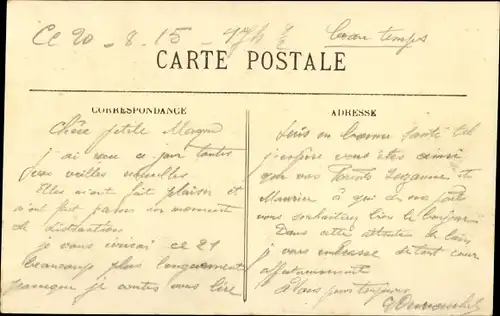 Ce 20 - 8 - 15 - 17h ½ beau temps
CARTE POSTALE
CORRESPONDANCE
Chère petite
j ai reçu ce jour toutes
vieilles nouvelles
Elles m'ont fait plaisir et
m'ont fait passer un moment
de distraction
je vous écrirai ce 21
beaucoup plus longuement
puisque je vous lire
ADRESSE
Suis en bonne santé tel
j'espère vous êtes ainsi
que vos Parents Suzanne et
Maurice à qui de ma part
vous souhaiterez bien le bonjour
Dans cette attente de loin
je vous embrasse de tout cœur
affectueusement
A vous pour toujours